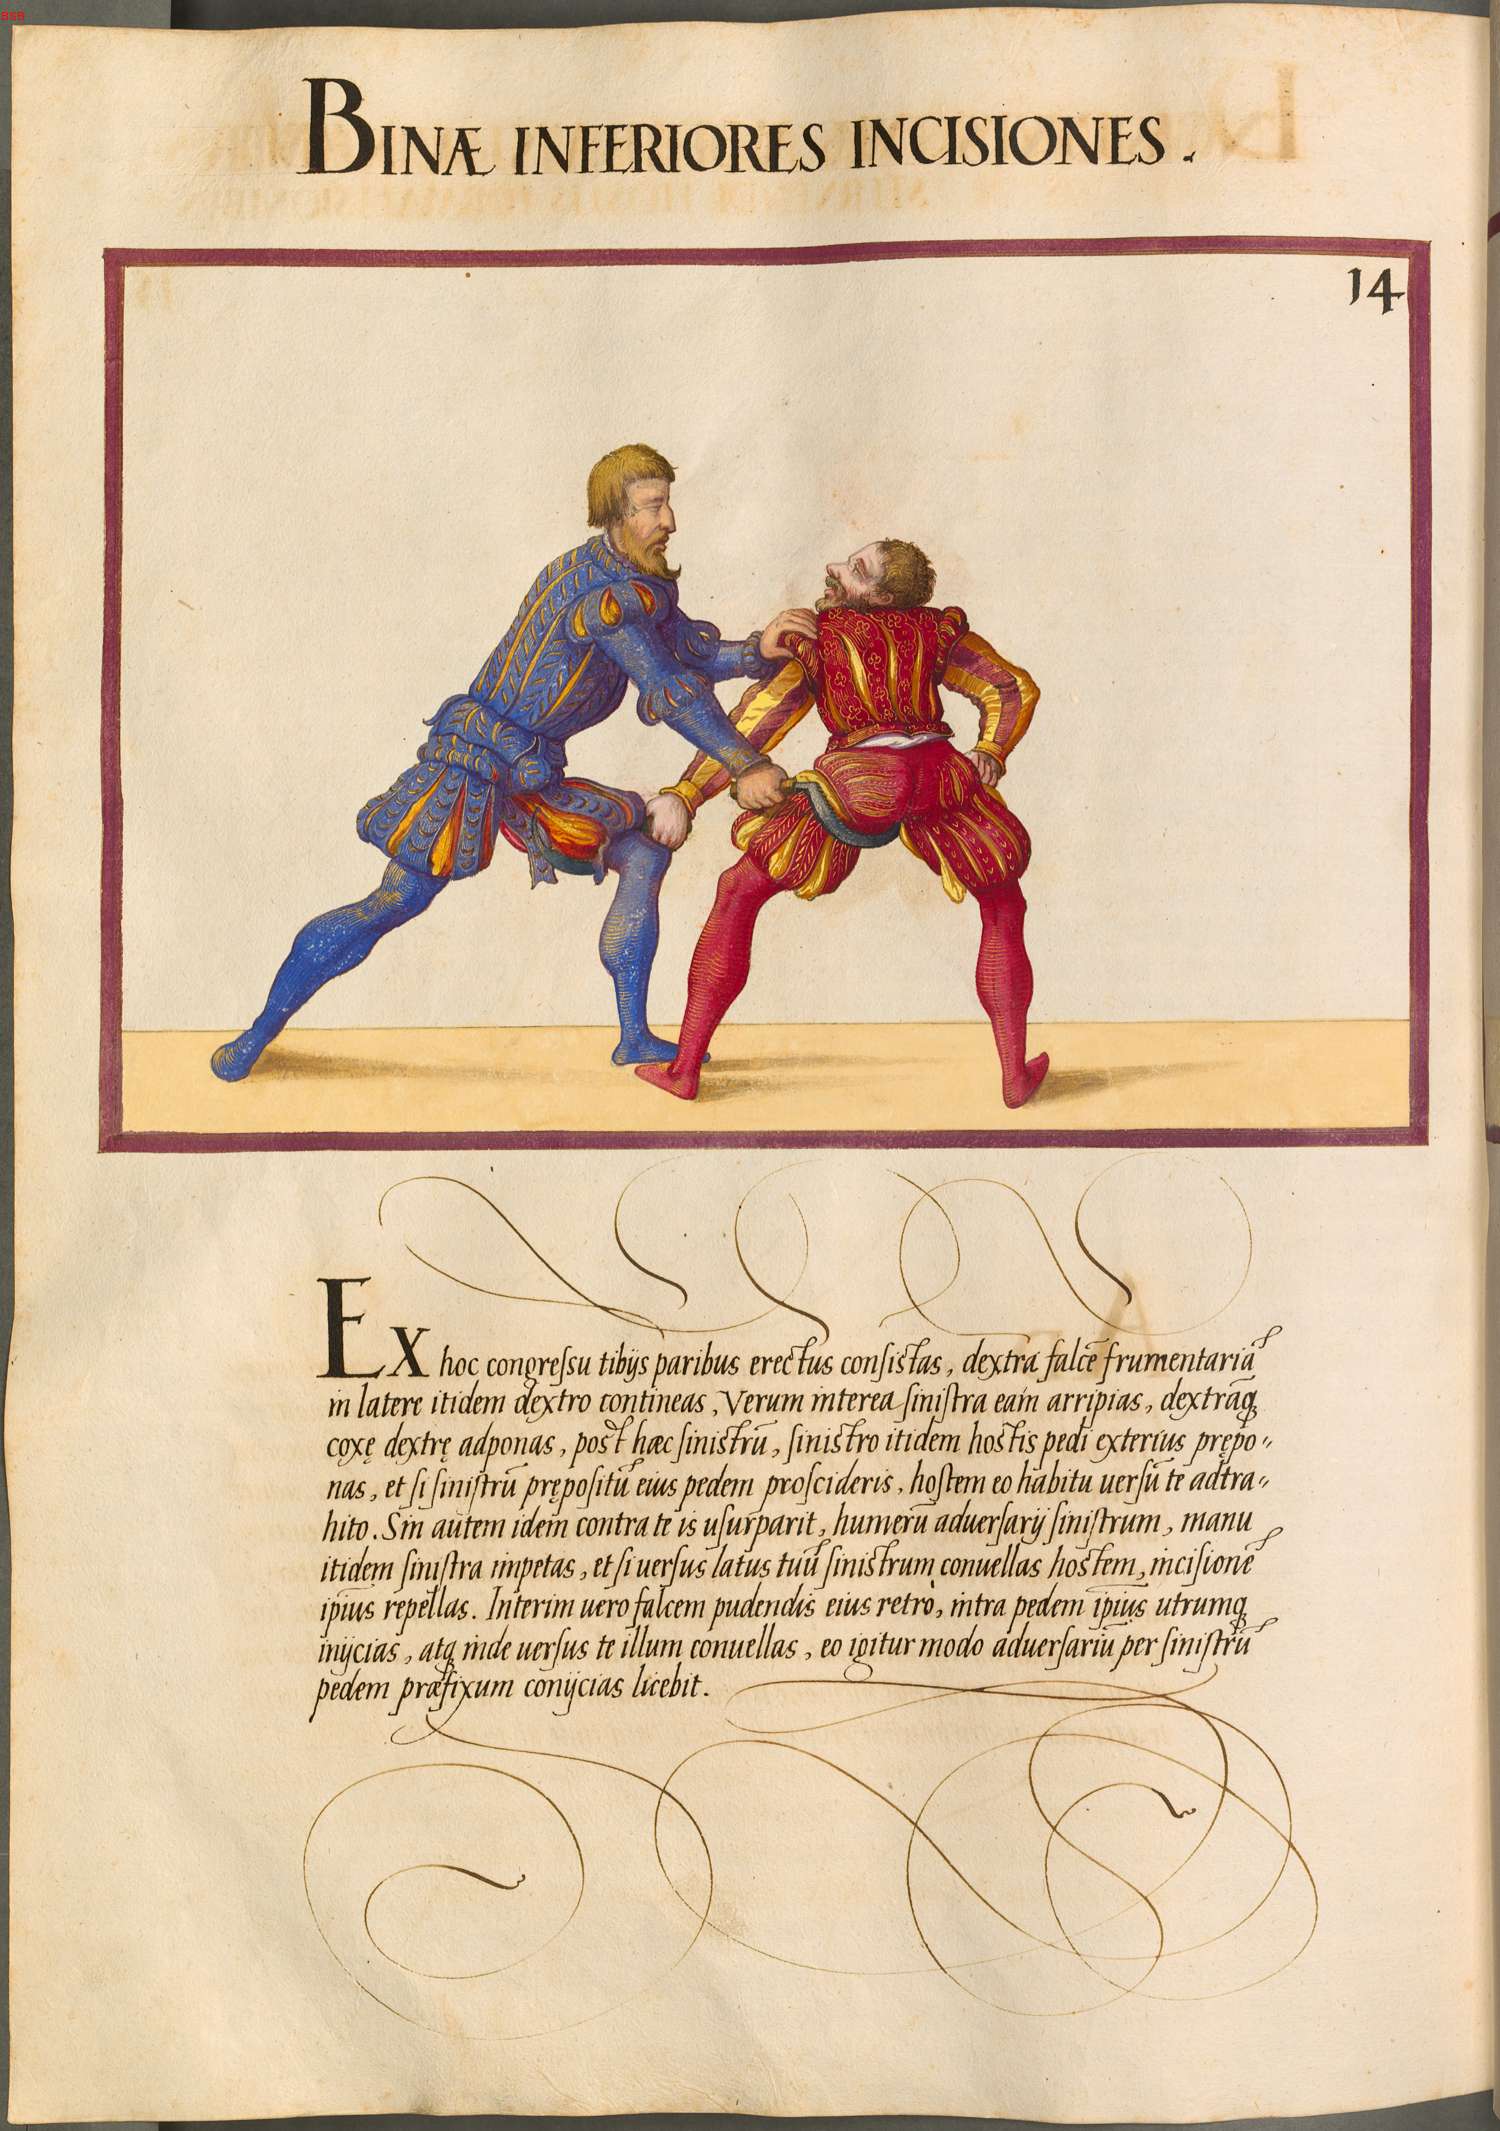 BSB
BINÆ INFERIORES INCISIONES.
14
Ex hoc congreſsu tibijs paribus erectus conſiſtas, dextra falcē frumentariā
in latere itidem dextro contineas, Verum interea ſiniſtra eam arripias, dextrāq́
coxę dextrę adponas, poſt hæc ſiniſtrū, ſiniſtro itidem hoſtis pedi exterius prępo〃
nas, et ſi ſiniſtrū prępoſitū eius pedem proſcideris, hoſtem eo habitu uerſū te adtra〃
hito. Sin autem idem contra te is uſurparit, humerū aduerſarij ſiniſtrum, manu
itidem ſiniſtra impetas, et ſi uerſus latus tuū ſiniſtrum conuellas hoſtem, inciſionē
ip̄ius repellas. Interim uero falcem pudendis eius retrò, intra pedem ip̄ius utrumq́
inijcias, atq́ inde uerſus te illum conuellas, eo igitur modo aduerſariū per ſiniſtrū
pedem præfixum conijcias licebit.